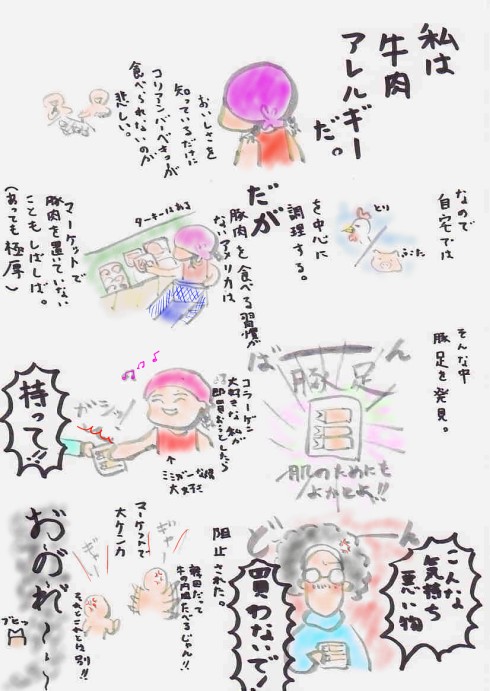 私は
牛肉
アレルギー
だ。
おいしさを
知っているだけに
コリアンバーベキューが
食べられないのが
悲しい。
なので
自宅では
とり
ぶた
を中心に
調理する。
だが
豚肉を食べる習慣が
ないアメリカは
マーケットで
豚肉を置いていない
こともしばしば。
(あっても極厚)
そんな中
豚足を発見。
ばーん
豚足
肌のためにも
よかとよ!!
コラーゲン
大好きな私が
即買おうとしたら
ミミガーな
大好き
ガシッ
持って!!
どーん
こんな
気持ち
悪い物
買わないで!
阻止された。
韓国だって
牛の内臓たべるじゃん!!
ギャー
ギャー
マーケットで
大ケンカ
それとこれとは別!!
おのれ〜〜〜
ブヒッ